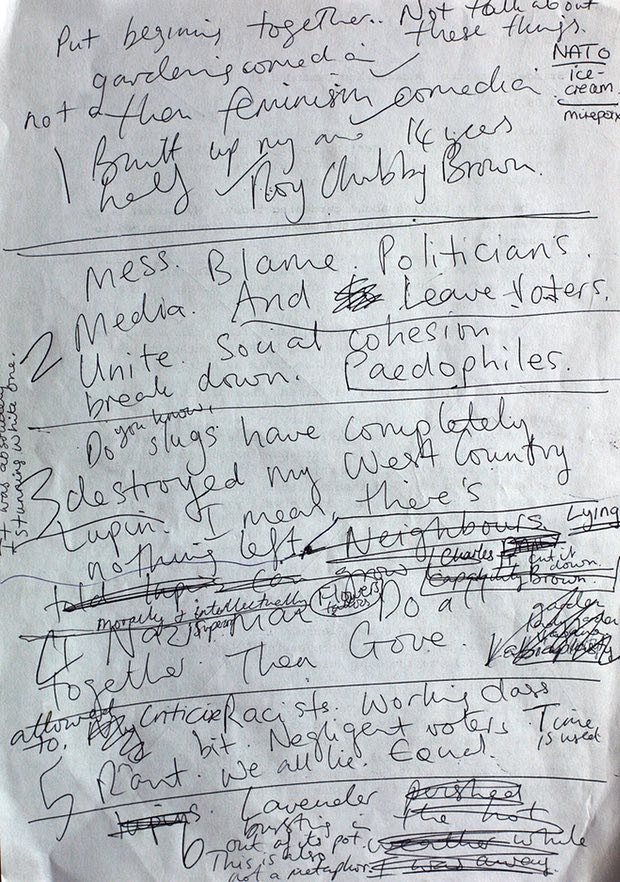 Put begining together.. Not talk about
these things.
gardening comedia
NATO
ice-
cream
not a then feminism comedia
1 Built up my 14 years
half Roy Chubby Brown.
Mess. Blame. Politicians.
Media. And Leave Voters.
2 Unite. Social cohesion
break down. Paedophiles.
It was absolutely
stunning white one.
Do you know, slugs have completely
3 destroyed my West Country
Lupin. I mean, there's
nothing left. Neighbours Lying
Charles cut it
down.
Capability Brown.
morally & intellectually
superior
Flowers
4 Nazi man Do all
together. Then Gove.
allowed
to. Criticize Racists. Working class
bit. Negligent voters. Time
is used
5 Rant. We all lie. Equal
6 Lavender perished
bursting in the hot
out of its pot. weather while
This is also
not a metaphor. I was away.